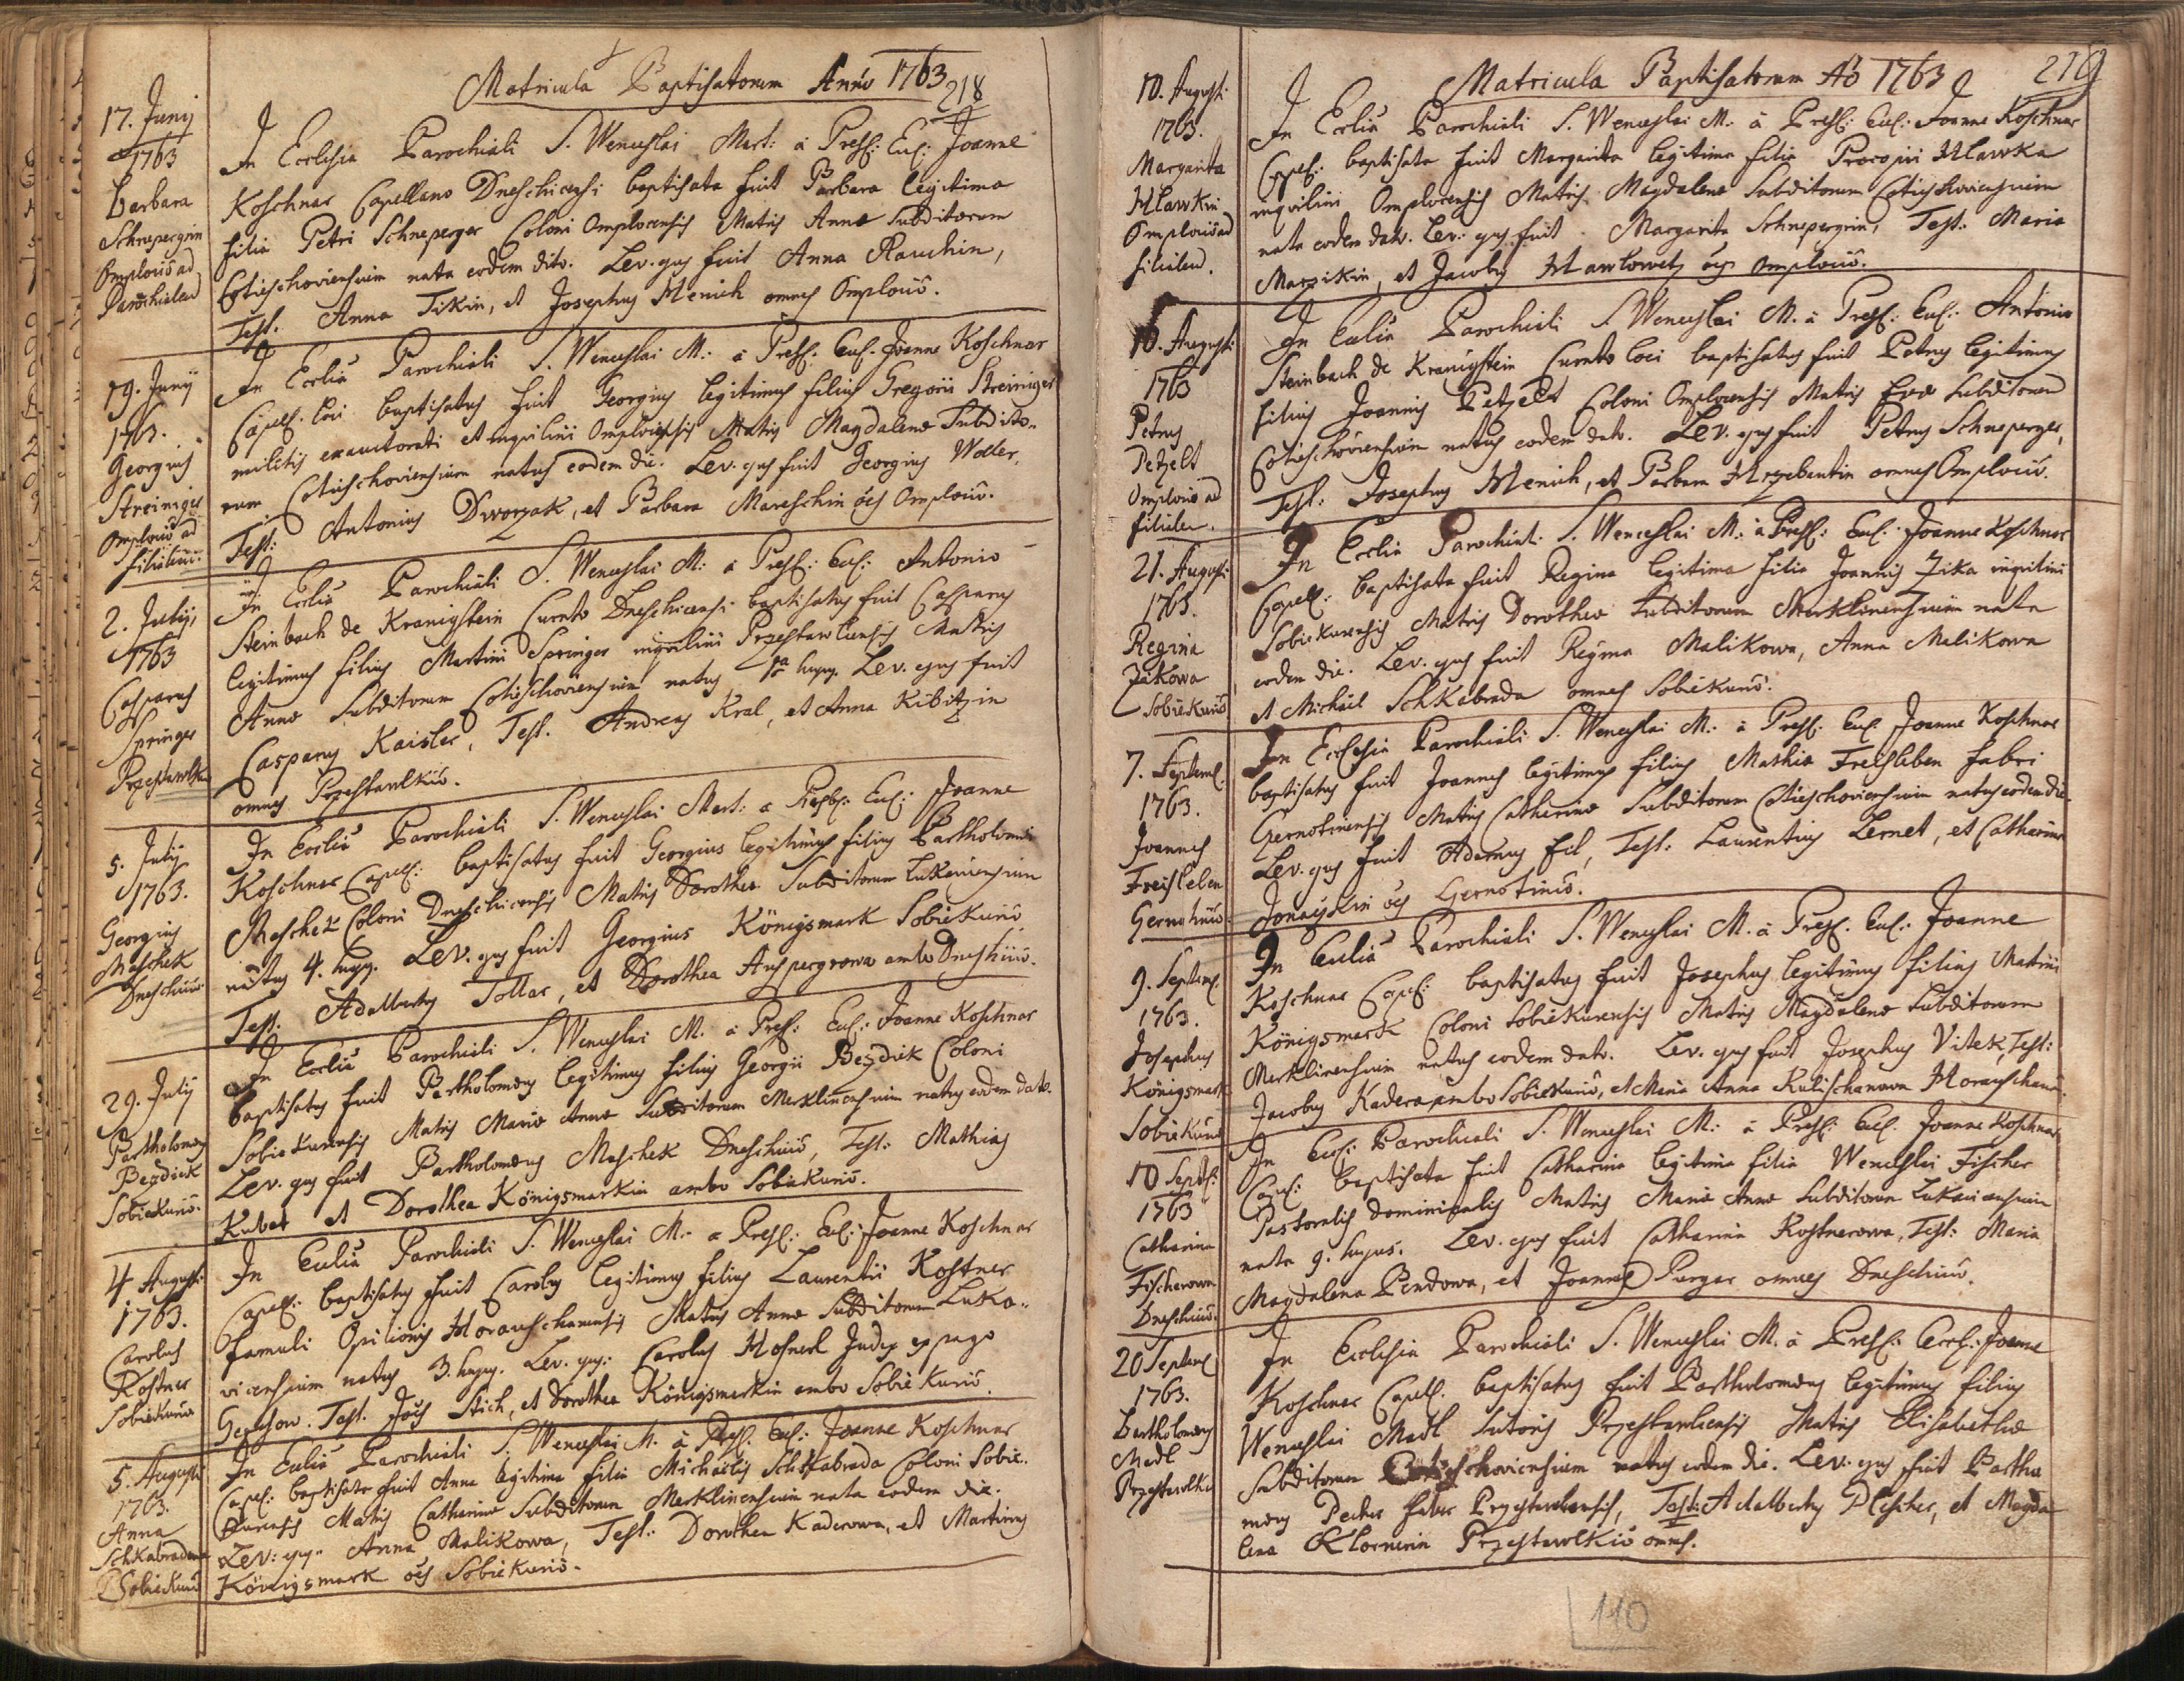 Matricula Baptisatorum Anno 1763
218
17. Junij
1763
Barbara
Schnepergrin
Omplouiô ad
Parochialem
In Ecclesia Parochiali S. Wenceslai Mart: à Presb: Eccl: Joanne
Koschner Capellano Dneschicensi baptisata fuit Barbara legitima
filia Petri Schneperger Coloni Omplocensis Matris Annæ Subditorum
Cotieschoviensium nata eodem dato. Lev. ejus fuit Anna Rauchin,
Test. Anna Tikin, et Josephus Henich omnes Omplouiô.
19. Junij
1763.
Georgius
Streiniger
Omplouiô ad
filialem.
In Ecclia Parochiali S. Wenceslai M: à Presb. Eccl. Joanne Koschner
Capell. loci baptisatus fuit Georgius legitimus filius Gregorii Streiniger
militis exauctorati et inquilini Omplocensis Matris Magdalenæ Subdito-
rum Cotieschoviensium natus eodem die. Lev. ejus fuit Georgius Woller,
Test: Antonius Dworzak, et Barbara Mareschin oes Omplouiô.
2. Julij
1763
Casparus
Springer
Przestawlk
In Ecclia Parochiali S. Wenceslai M: à Presb: Eccl: Antonio
Steinbach de Kranigstein Curato Dneschicensi baptisatus fuit Casparus
legitimus filius Martini Springer inquilini Przestawlcensis Matris
Annæ Subditorum Cotieschoviensium natus 1ma hujus. Lev. ejus fuit
Casparus Kaisler, Test. Andreas Kral, et Anna Kibitzin
omnes Przestawlkiô.
5. Julij
1763.
Georgius
Maschek
Dneschiciô
In Ecclia Parochiali S. Wenceslai Mart: a Presb: Eccl: Joanne
Koschner Capell: baptisatus fuit Georgius legitimus filius Bartholomæi
Maschek Coloni Dneschicensis Matris Dorotheæ Subditorum Lukaviensium
natus 4. hujus. Lev. ejus fuit Georgius Königsmark Sobiekuriô
Test: Adalbertus Tollar, et Dorothea Auspergrowa ambo Dneschiciô.
29. Julij
Bartholomæus
Bezdiek
Sobiekuriô.
In Ecclia Parochiali S. Wenceslai M. à Presb: Eccl: Joanne Koschner
baptisatus fuit Bartholomæus legitimus filius Georgii Bezdiek Coloni
Sobiekurensis Matris Mariæ Annæ Subditorum Merklinensium natus eodem dato.
Lev. ejus fuit Bartholomæus Maschek Dneschiciô, Test: Mathias
Kubat et Dorothea Königsmarkin ambo Sobiekuriô.
4 Augusti
1763.
Carolus
Kostner
Sobiekuriô
In Ecclia Parochiali S. Wenceslai M: a Presb: Eccl: Joanne Koschner
Capell: baptisatus fuit Carolus legitimus filius Laurentii Kostner
famuli Opilionis Horauschanensis Matris Annæ Subditorum Luka-
vicensium natus 3. hujus. Lev. ejus: Carolus Hosnerl Judex ex pago
Test. Joes Stich, et Dorothea Königsmarkin ambo Sobiekuriô.
5. Augusti
1763.
Anna
Schkabradowa
Sobiekuriô
In Ecclia Parochiali S. Wenceslai M. à Presb. Eccl: Joanne Koschner
Capell: baptisata fuit Anna legitima filia Michaelis Schkabrada Coloni Sobie-
kurensis Matris Catharinæ Subditorum Merklinensium nata eodem die.
Lev: ejus Anna Malikowa, Test: Dorothea Kaderowa, et Martinus
Königsmark oes Sobiekuriô.
Matricula Baptisatorum Aô 1763
219
10. Augusti
1763.
Margarita
Hlawkin
Omplouiô ad
filialem.
In Ecclia Parochiali S. Wenceslai M: à Presb: Eccl: Joanne Koschner
Capell: baptisata fuit Margarita legitima filia Procopii Hlawka
inquilini Omplocensis Matris Magdalenæ Subditorum Cotieschoviensium
nata eodem dato. Lev: ejus fuit Margarita Schnepergrin, Test: Maria
Marzikin, et Jacobus Hawlowetz oes Omplouiô.
16. Augusti
1763
Petrus
Petzelt
Omplouiô ad
filialem.
In Ecclia Parochiali S. Wenceslai M. à Presb: Eccl: Antonio
Steinbach de Kranigstein Curato loci baptisatus fuit Petrus legitimus
filius Joannis Petzelt Coloni Omplocensis Matris Evæ Subditorum
Cotieschoviensium natus eodem dato. Lev. ejus fuit Petrus Schneperger,
Test: Josephus Henich, et Barbara Hrzebentin omnes Omplouiô.
21. Augusti
1763.
Regina
Zikowa
Sobiekuriô
In Ecclia Parochiali S. Wenceslai M: à Presb: Eccl: Joanne Koschner
Capell: baptisata fuit Regina legitima filia Joannis Zika inquilini
Sobiekurensis Matris Dorotheæ Subditorum Merklinensium nata
eodem die. Lev. ejus fuit Regina Malikowa, Anna Malikowa
et Michael Schkabrada omnes Sobiekuriô.
7. Septemb.
1763.
Joannes
Freisleben
Gernotiniô
In Ecclesia Parochiali S. Wenceslai M: à Presb: Eccl. Joanne Koschner
baptisatus fuit Joannes legitimus filius Mathiæ Freisleben fabri
Gernotinensis Matris Catharinæ Subditorum Cotieschoviensium natus eodem die.
Lev. ejus fuit Adamus Fil, Test: Laurentius Lernet, et Catharina
Jonayskin oes Gernotiniô.
9. Septemb.
1763.
Josephus
Königsmark
Sobiekuriô
In Ecclia Parochiali S. Wenceslai M. à Presb. Eccl: Joanne
Koschner Capell: baptisatus fuit Josephus legitimus filius Martini
Königsmark Coloni Sobiekurensis Matris Magdalenæ Subditorum
Merklinensium natus eodem dato. Lev. ejus fuit Josephus Vitek, Test:
Jacobus Kadera ambo Sobiekuriô, et Maria Anna Kulischanowa Horauschan
10 Septb:
1763
Catharina
Fischerowa
Dneschiciô.
In Eccl: Parochiali S. Wenceslai M: à Presb: Eccl. Joanne Koschner
Capell: baptisata fuit Catharina legitima filia Wenceslai Fischer
Pastoralis dominicalis Matris Mariæ Annæ Subditorum Lukavicensium
nata 9. hujus. Lev. ejus fuit Catharina Kostnerowa, Test: Maria
Magdalena Pendowa, et Joannes Purgar omnes Dneschiciô.
20 Septemb
1763.
Bartholomæus
Madl
Przestawlk
In Ecclesia Parochiali S. Wenceslai M. à Presb: Eccl: Joanne
Koschner Capell. baptisatus fuit Bartholomæus legitimus filius
Wenceslai Madl Sutoris Przestawlcensis Matris Elisabethæ
Subditorum Cotieschoviensium natus eodem die. Lev. ejus fuit Bartho
mæus Pecher faber Przestawlcensis, Test: Adalbertus Plescher, et Magda
lena Klornerin Przestawlkiô omnes.
110